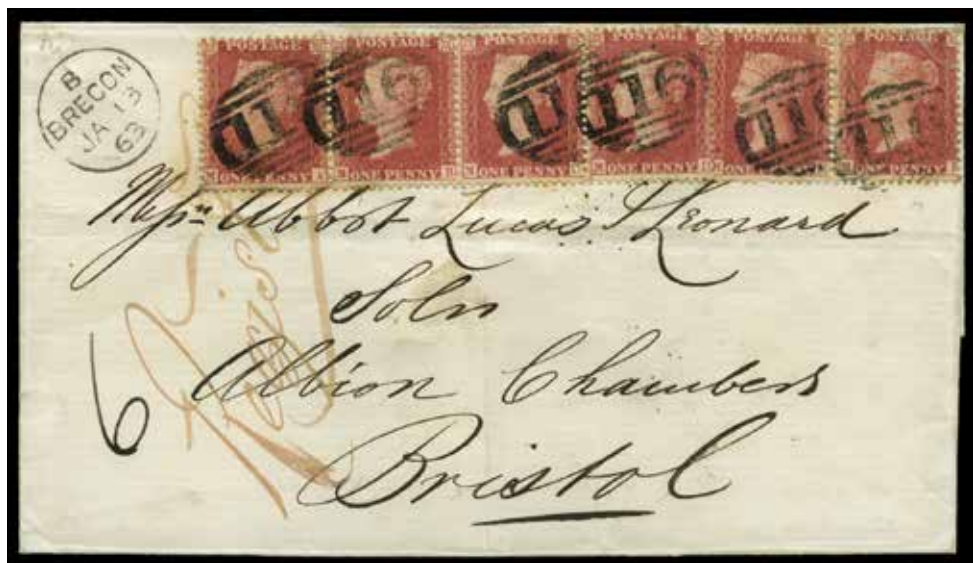 B
BRECON
JA 13
63
POSTAGE POSTAGE POSTAGE POSTAGE POSTAGE POSTAGE
116 116 116 116
ONE PENNY ONE PENNY ONE PENNY ONE PENNY ONE PENNY ONE PENNY
Messrs Abbot Lucas & Leonard
Solrs
Albion Chambers
Bristol
6